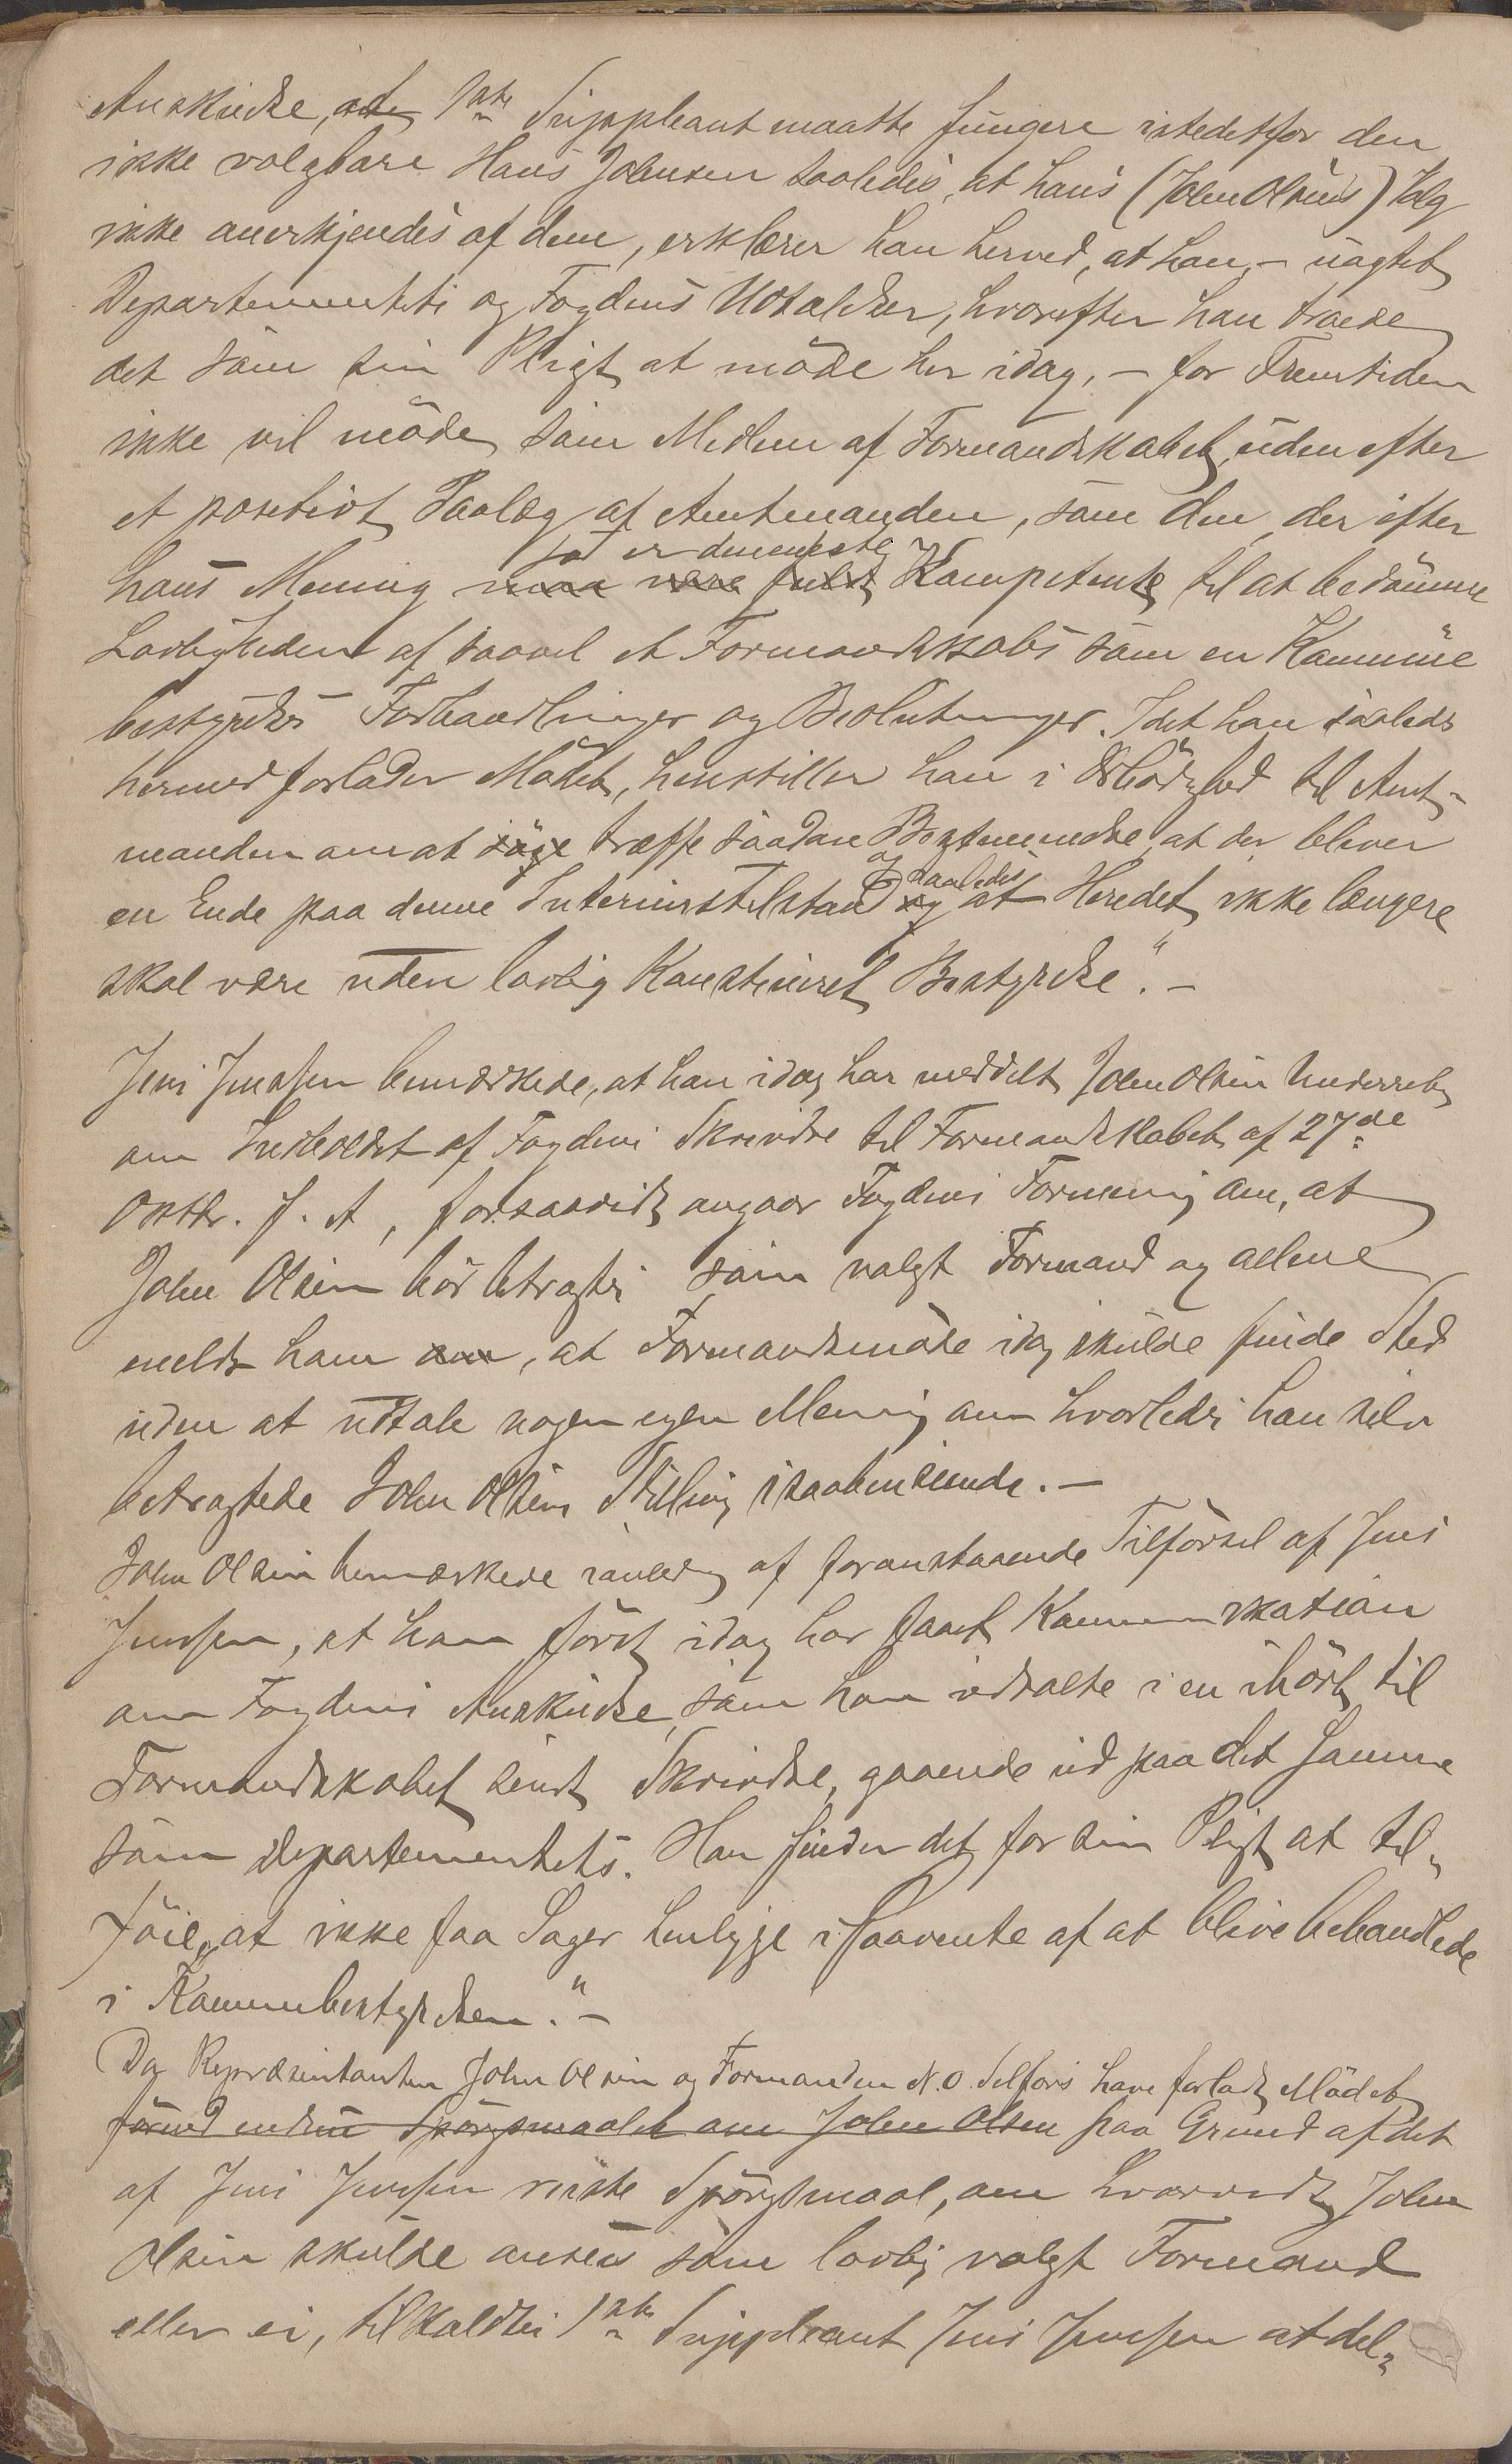 Anskuelse, at 1ste Suppleant maatte fungere istedetfor den
ikke valgbare Hans Johnsen saaledes, at hans (John Olsens) Valg
ikke anerkjendes af dem, erklærer han herved, at han, – uagtet
Departementets og Fogdens Udtalelser, hvorefter han troede
det som sin Pligt at møde her idag, – for Fremtiden
ikke vil møde som Medlem af Formandskabet, uden efter
et positivt Paalæg af Amtmanden, som den, der efter
hans Mening maa være fuldt Kompetente til at bedømme
jo er den eneste
Lovligheden af saavel et Formandskabs som en Kommune
bestyrelses Forhandlinger og Beslutninger. Idet han saaledes
hermed forlader Mødet, henstiller han i Ærbødighed til Amt-
manden om at søge træffe saadan Bestemmelse, at der bliver
en Ende paa denne Interimstilstand og at Heredet ikke længere
og saaledes
skal være uden lovlig Konstitueret Bestyrelse." –
Jens Jenssen bemærkede, at han idag har meddelt John Olsen Underretn
om Indholdet af Fogdens Skrivelse til Formandskabet af 27de
Oktbr. f. A, forsaavidt angaar Fogdens Formening om, at
John Olsen bør betragtes som valgt Formand og allene
meldt ham om, at Formandsmøde idag skulde finde Sted
uden at udtale nogen egen Mening om hvorledes han selv
betragtede John Olsens Stilling i saahenseende. –
John Olsen bemærkede i anledng af foranstaaende Tilførsel af Jens
Jenssen, at han først idag har faaet Kommunikation
om Fogdens Anskuelse, som han udtalte i en ihøst til
Formandskabet sendt Skrivelse, gaaende ud paa det samme
som Departementets. Han finder det for sin Pligt at til-
føie, at ikke faa Sager henligge i Paavente af at blive behandlede
i Kommubestyrelsen." –
Da Repræsentanten John Olsen og Formanden N. O. Selfors have forladt Mødet
førend endnu Spørgsmaalet om John Olsen paa Grund af det
af Jens Jenssen reiste Spørgsmaal, om hvorvidt John
Olsen skulde ansees som lovlig valgt Formand
eller ei, tilkaldtes 1ste Suppleant Jens Jenssen at del-